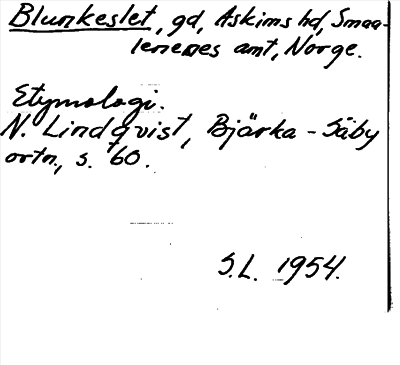 Blunkeslet, gd, Askims hd, Smaa-
lenenes amt, Norge.
Etymologi.
N. Lindqvist, Bjärka-Säby
ortn., s. 60.
S.L. 1954.